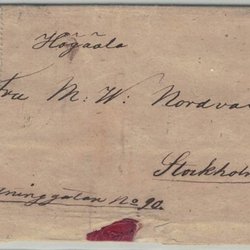 Högädla
Fru M: W: Nordva
Stockholm
ninggatan No 90.